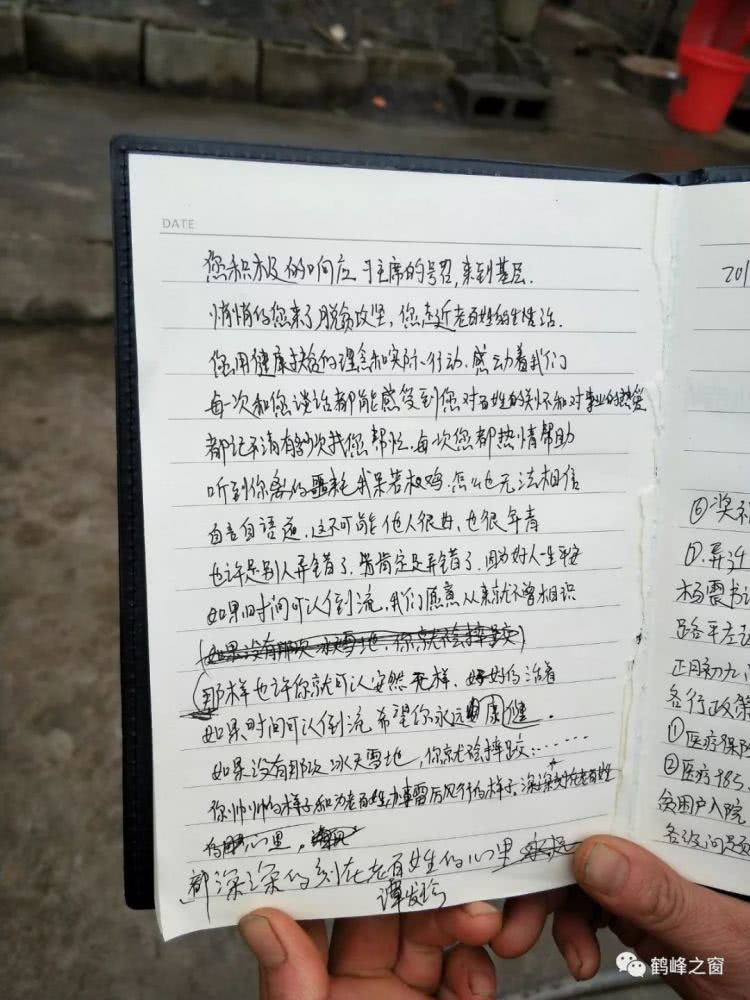 DATE
您积极的响应习主席的号召,来到基层.
悄悄的您来了脱贫攻坚,您走近老百姓的生活.
您用健康扶贫的理念和实际行动.感动着我们
每一次和您谈话都能感受到您对百姓的关怀和对事业的热爱
都记不清有多少次找您帮忙.每次您都热情帮助
听到你离的噩耗我呆若木鸡.怎么也无法相信
自言自语道,这不可能他人很好,也很年青
也许是别人弄错了.肯定是弄错了.因为好人一生平安
如果时间可以倒流,我们愿意从来就不曾相识
(如果没有那次冰天雪地,你就不会摔跤)
那样也许你就可以安然无样、好好的活着
如果时间可以倒流 希望你永远康健.
如果没有那次冰天雪地,你就不会摔跤……
你帅帅的样子和为老百姓办事雷厉风行的样子,深深刻在老百姓
的心里,
都深深的刻在老百姓的心里
谭发珍
201
⑥奖补
⑦.异
杨震书记
路平
正月初九
各行政策
①医疗保险
②医疗985.
贫困户入院
各级问题
鹤峰之窗